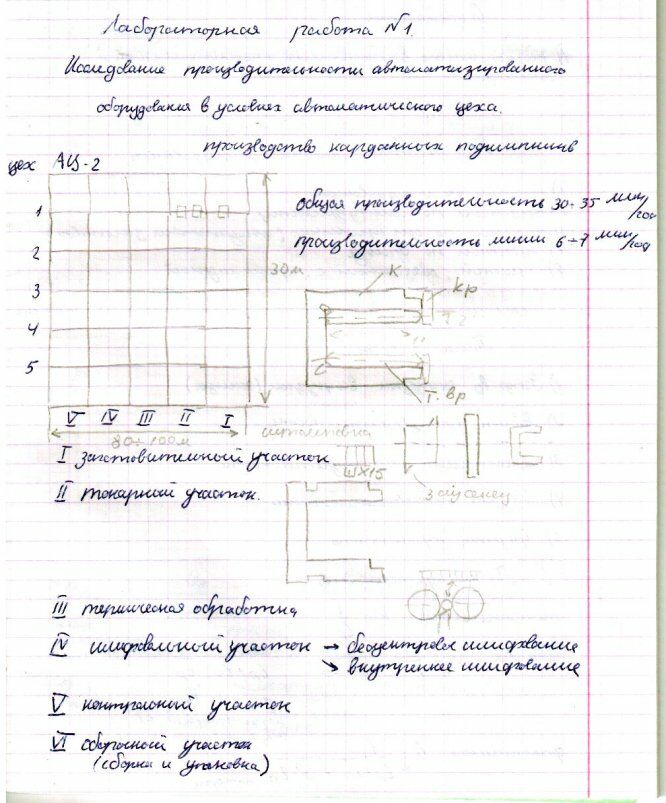 Лабораторная работа №1.
Исследование производительности автоматизированного
оборудования в условиях автоматического цеха.
производство карданных подшипников
цех АЦ-2
общая производительность 30-35 млн/год
производительность линии 6÷7 млн/год
1
2
3
4
5
30м
К
кр
Т. вр
V IV III II I
80÷100м
штамповка
ШХ15
заусенец
I заготовительный участок
II токарный участок.
III термическая обработка
IV шлифовальный участок → бесцентровое шлифование
↘ внутреннее шлифование
V контрольный участок
VI сборочный участок
(сборка и упаковка)